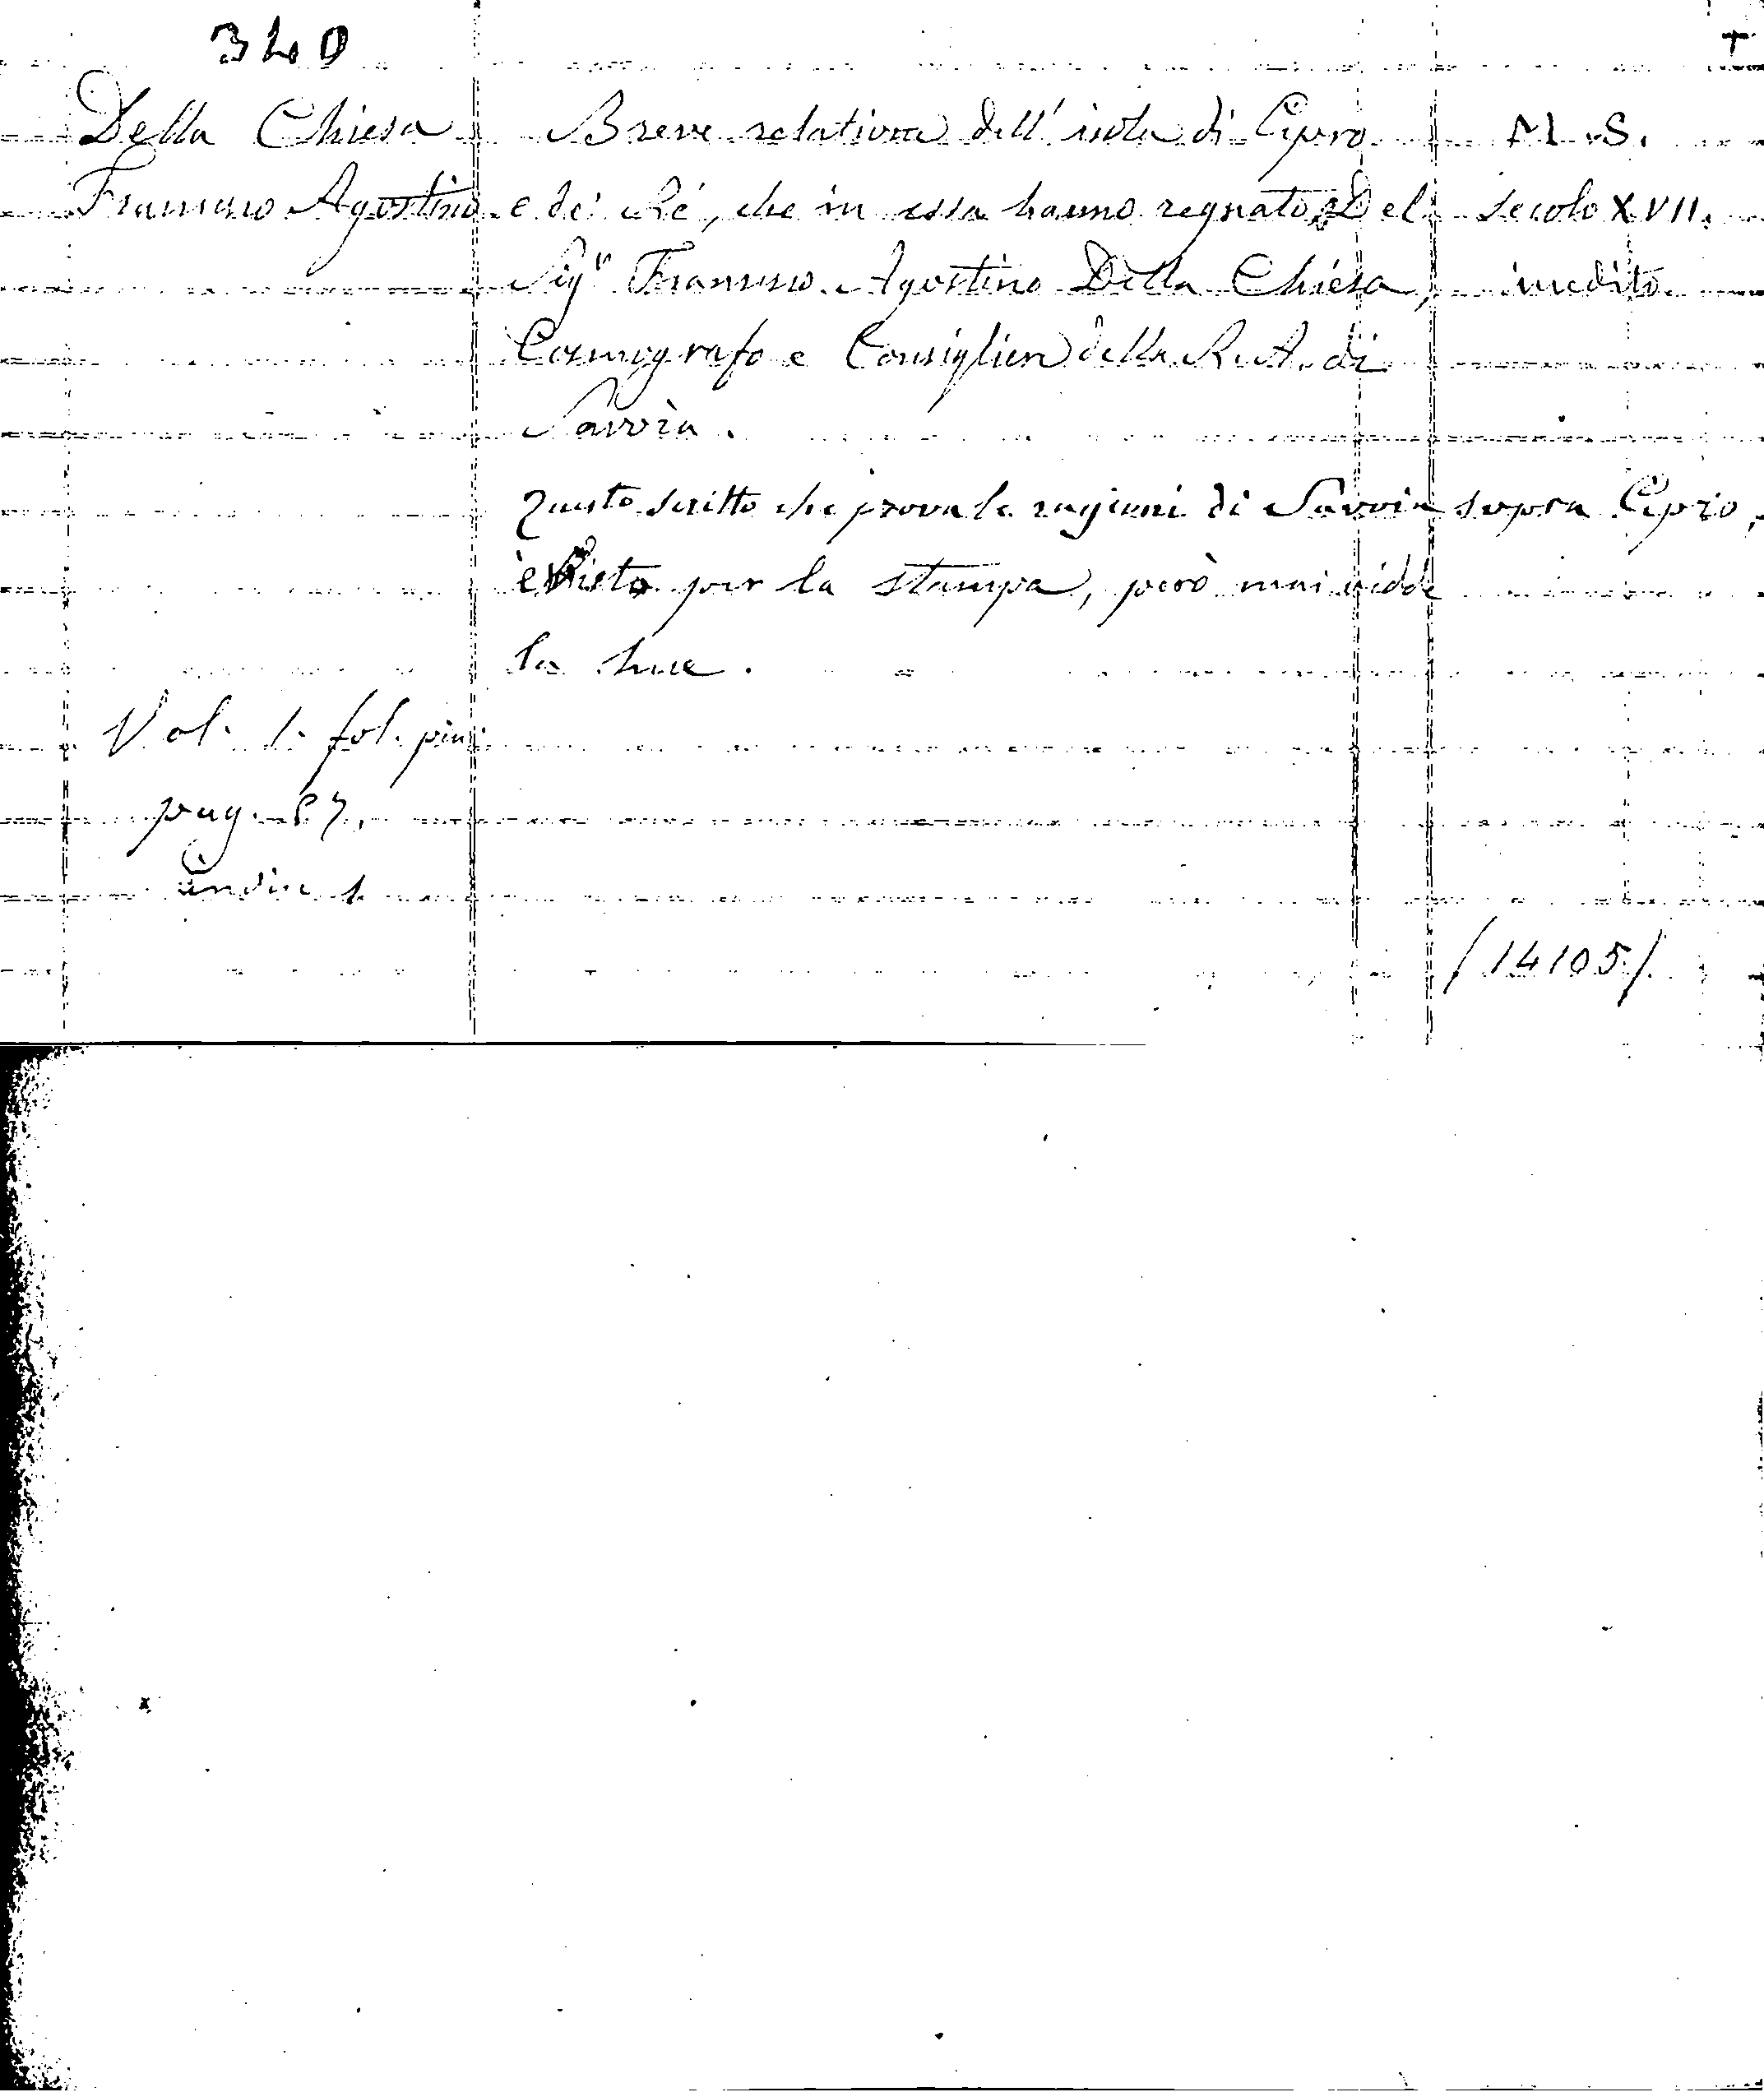 340
Della Chiesa Breve relatione dell' isola di Cipro M.S.
Francesco Agostino e dei Ré, che in essa hanno regnato, Del secolo XVII.
Sigr Francesco Agostino Della Chiesa, inedito
Cosmografo e Consigliere della R. A. di
Savoia.
Questo scritto che prova le ragioni di Savoia sopra Cipro,
è visto per la stampa, però mai vidde
la luce.
Vol. 1. fol. pic.
pag. 87.
Indice 1
(14105).